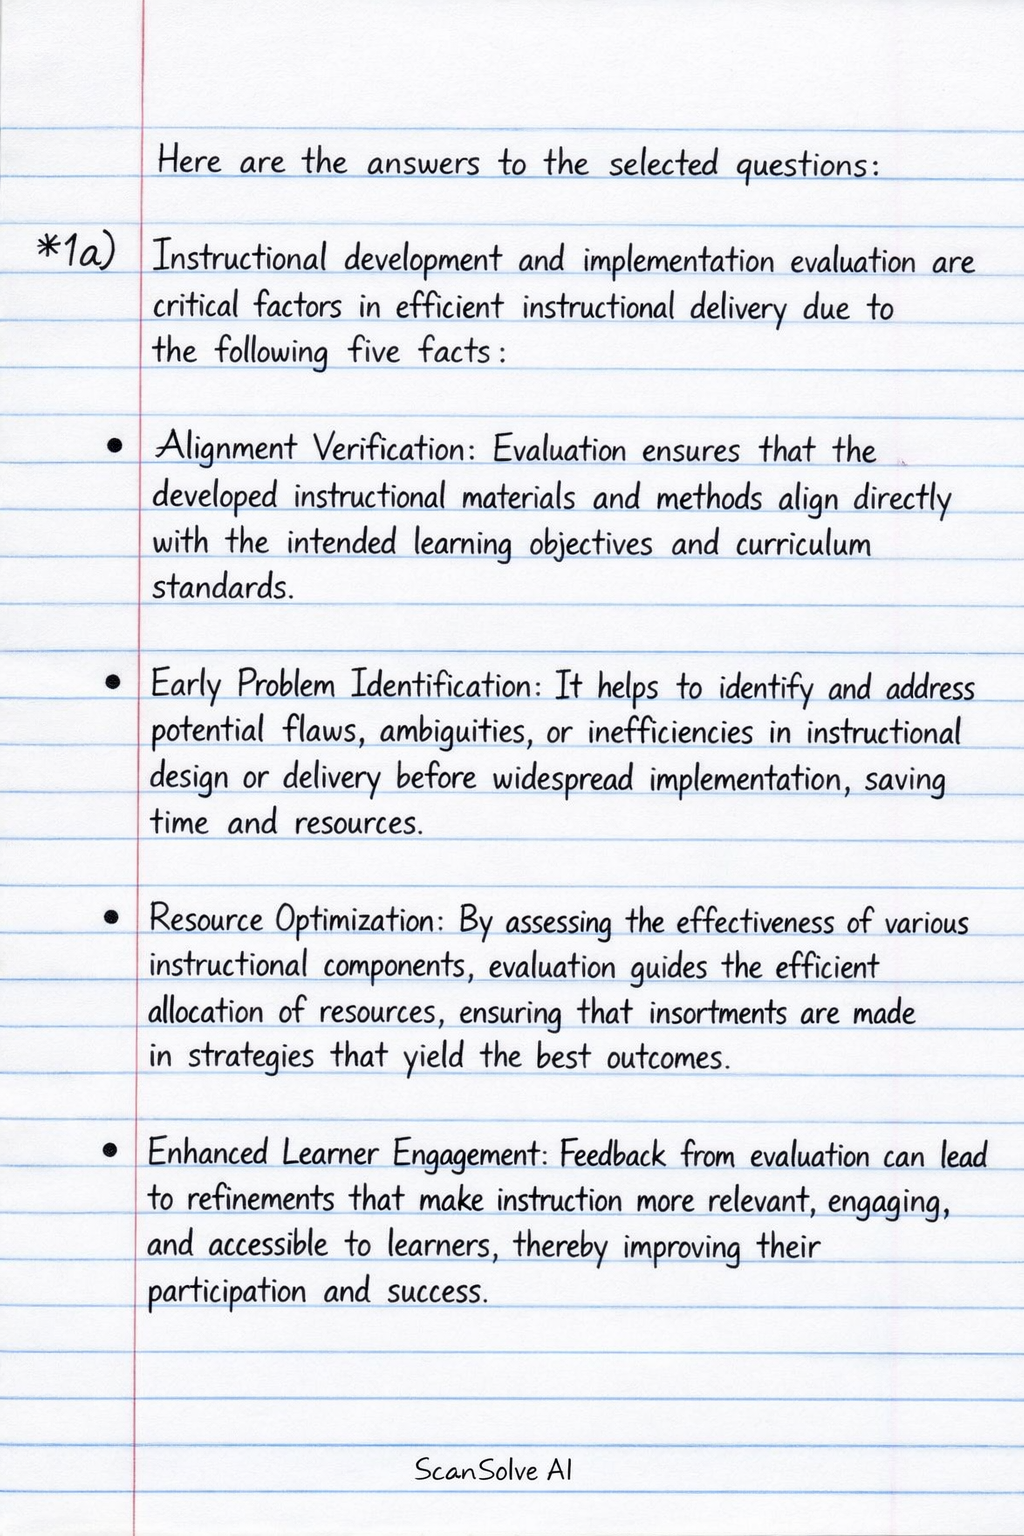 Here are the answers to the selected questions:
*1a) Instructional development and implementation evaluation are
critical factors in efficient instructional delivery due to
the following five facts:
• Alignment Verification: Evaluation ensures that the
developed instructional materials and methods align directly
with the intended learning objectives and curriculum
standards.
• Early Problem Identification: It helps to identify and address
potential flaws, ambiguities, or inefficiencies in instructional
design or delivery before widespread implementation, saving
time and resources.
• Resource Optimization: By assessing the effectiveness of various
instructional components, evaluation guides the efficient
allocation of resources, ensuring that insortments are made
in strategies that yield the best outcomes.
• Enhanced Learner Engagement: Feedback from evaluation can lead
to refinements that make instruction more relevant, engaging,
and accessible to learners, thereby improving their
participation and success.
ScanSolve AI